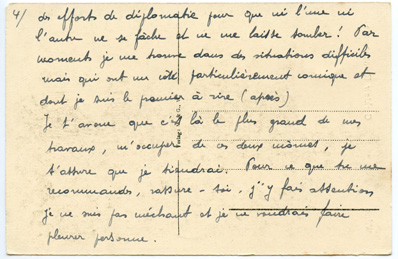 4/ des efforts de diplomatie pour que ni l'une ni
l'autre ne se fâche et ne me laisse tomber ! Par
moments je me trouve dans des situations difficiles
mais qui ont un côté particulièrement comique et
dont je suis le premier à rire (après)
Je t'avoue que c'est là le plus grand de mes
travaux, m'occuper de ces deux mômes, je
t'assure que je tiendrai. Pour ce que tu me
recommandes, rassure-toi, j'y fais attention
je ne suis pas méchant et je ne voudrais faire
pleurer personne.